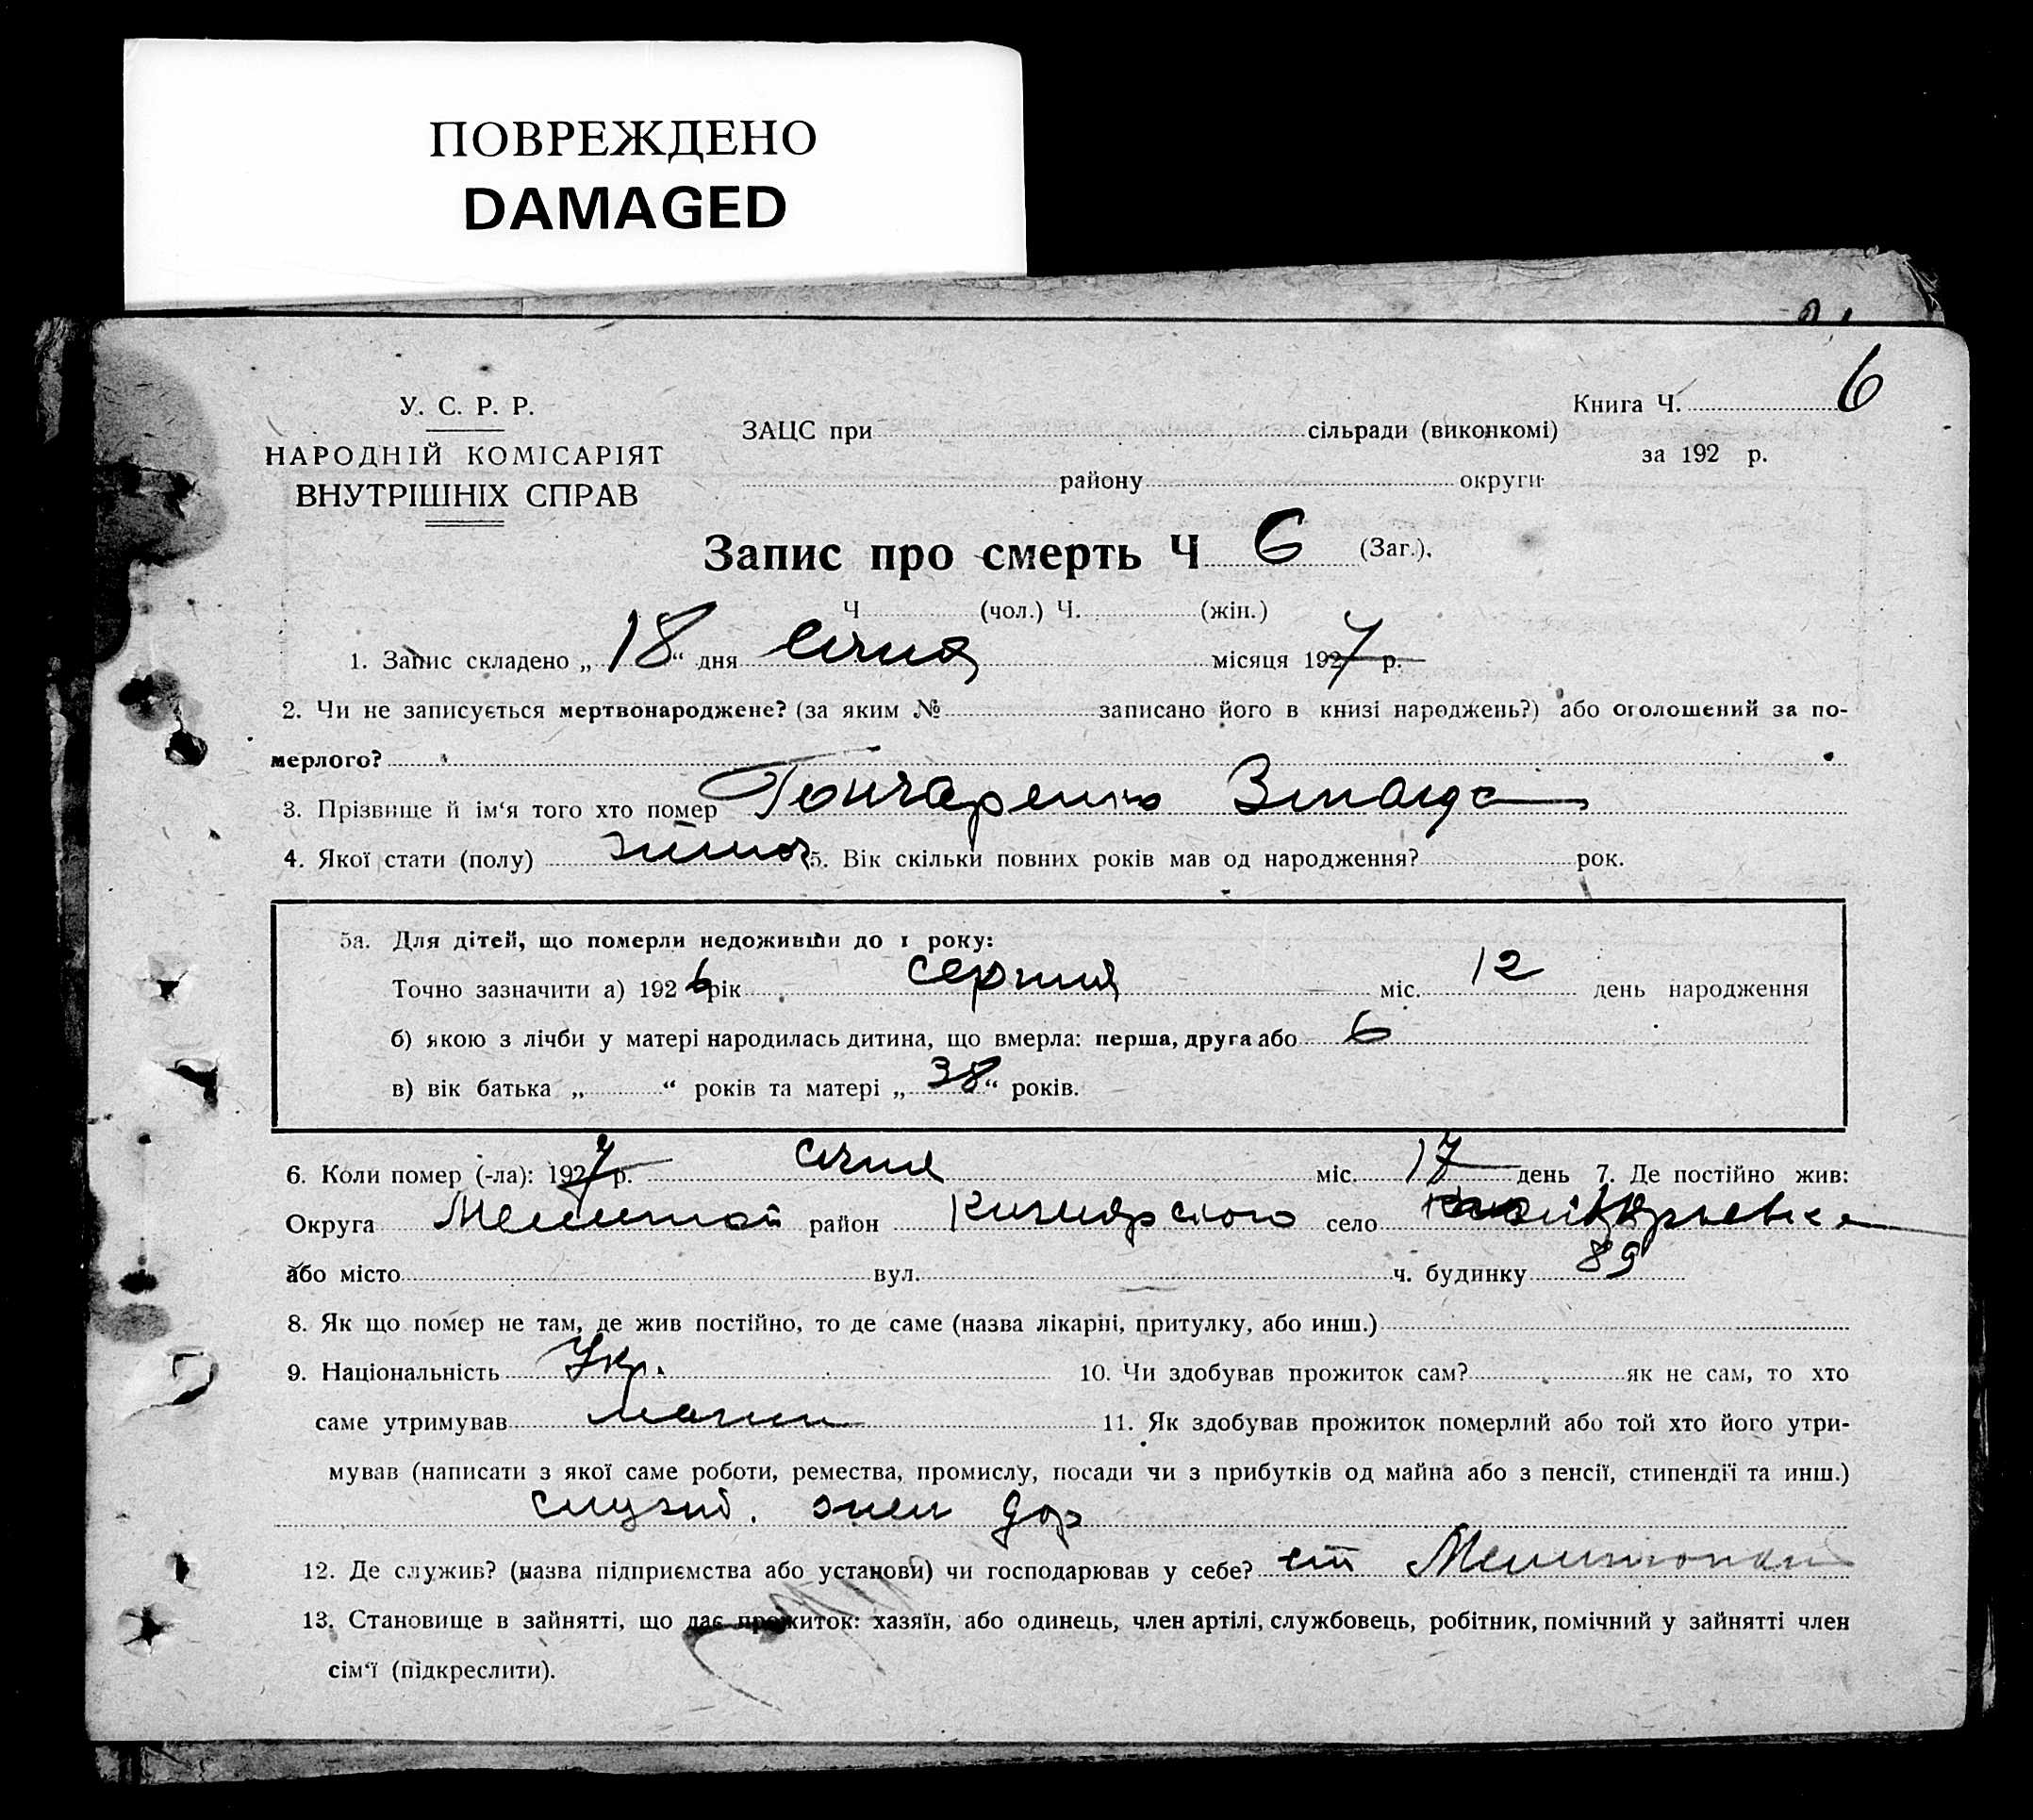 ПОВРЕЖДЕНО
DAMAGED
6
У. С. Р. Р.
НАРОДНІЙ КОМІСАРІЯТ
ВНУТРІШНІХ СПРАВ
ЗАЦС при сільради (виконкомі)
району округи
Книга Ч.
за 192 р.
Запис про смерть Ч 6 (Заг.).
Ч (чол.) Ч. (жін.)
1. Запис складено „ 18 “ дня січня місяця 1927 р.
2. Чи не записується мертвонароджене? (за яким № записано його в книзі народжень?) або оголошений за по-
мерлого?
3. Прізвище й ім‘я того хто помер Гончаренко
4. Якої стати (полу) 5. Вік скільки повних років мав од народження? рок.
5а. Для дітей, що померли недоживши до 1 року:
Точно зазначити а) 1926 рік серпня міс. 12 день народження
б) якою з лічби у матері народилась дитина, що вмерла: перша, друга або 6
в) вік батька „ “ років та матері „ 38 “ років.
6. Коли помер (-ла): 1927 р. січня міс. 17 день 7. Де постійно жив:
Округа Мелитоп район Кизиярського село
або місто вул. ч. будинку 89
8. Як що помер не там, де жив постійно, то де саме (назва лікарні, притулку, або инш.)
9. Національність Укр. 10. Чи здобував прожиток сам? як не сам, то хто
саме утримував 11. Як здобував прожиток померлий або той хто його утри-
мував (написати з якої саме роботи, ремества, промислу, посади чи з прибутків од майна або з пенсії, стипендії та инш.)
служб. дор
12. Де служив? (назва підприємства або установи) чи господарював у себе? ст Мелитополь
13. Становище в зайнятті, що дає прожиток: хазяїн, або одинець, член артілі, службовець, робітник, помічний у зайнятті член
сім‘ї (підкреслити).